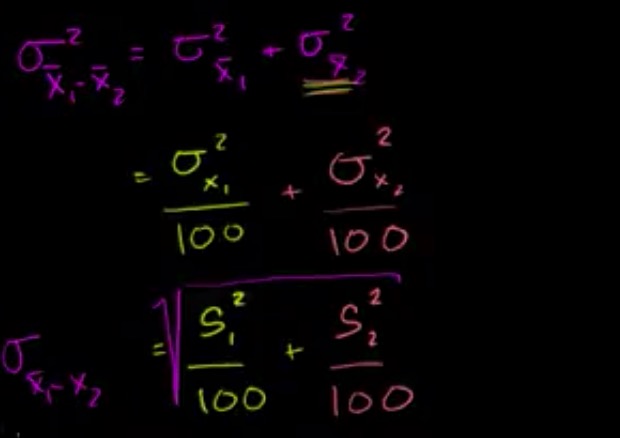 σ²_{x̄₁-x̄₂} = σ²_{x̄₁} + σ²_{x̄₂}
= σ²_{x₁}/100 + σ²_{x₂}/100
σ_{x̄₁-x₂} = √(S₁²/100 + S₂²/100)